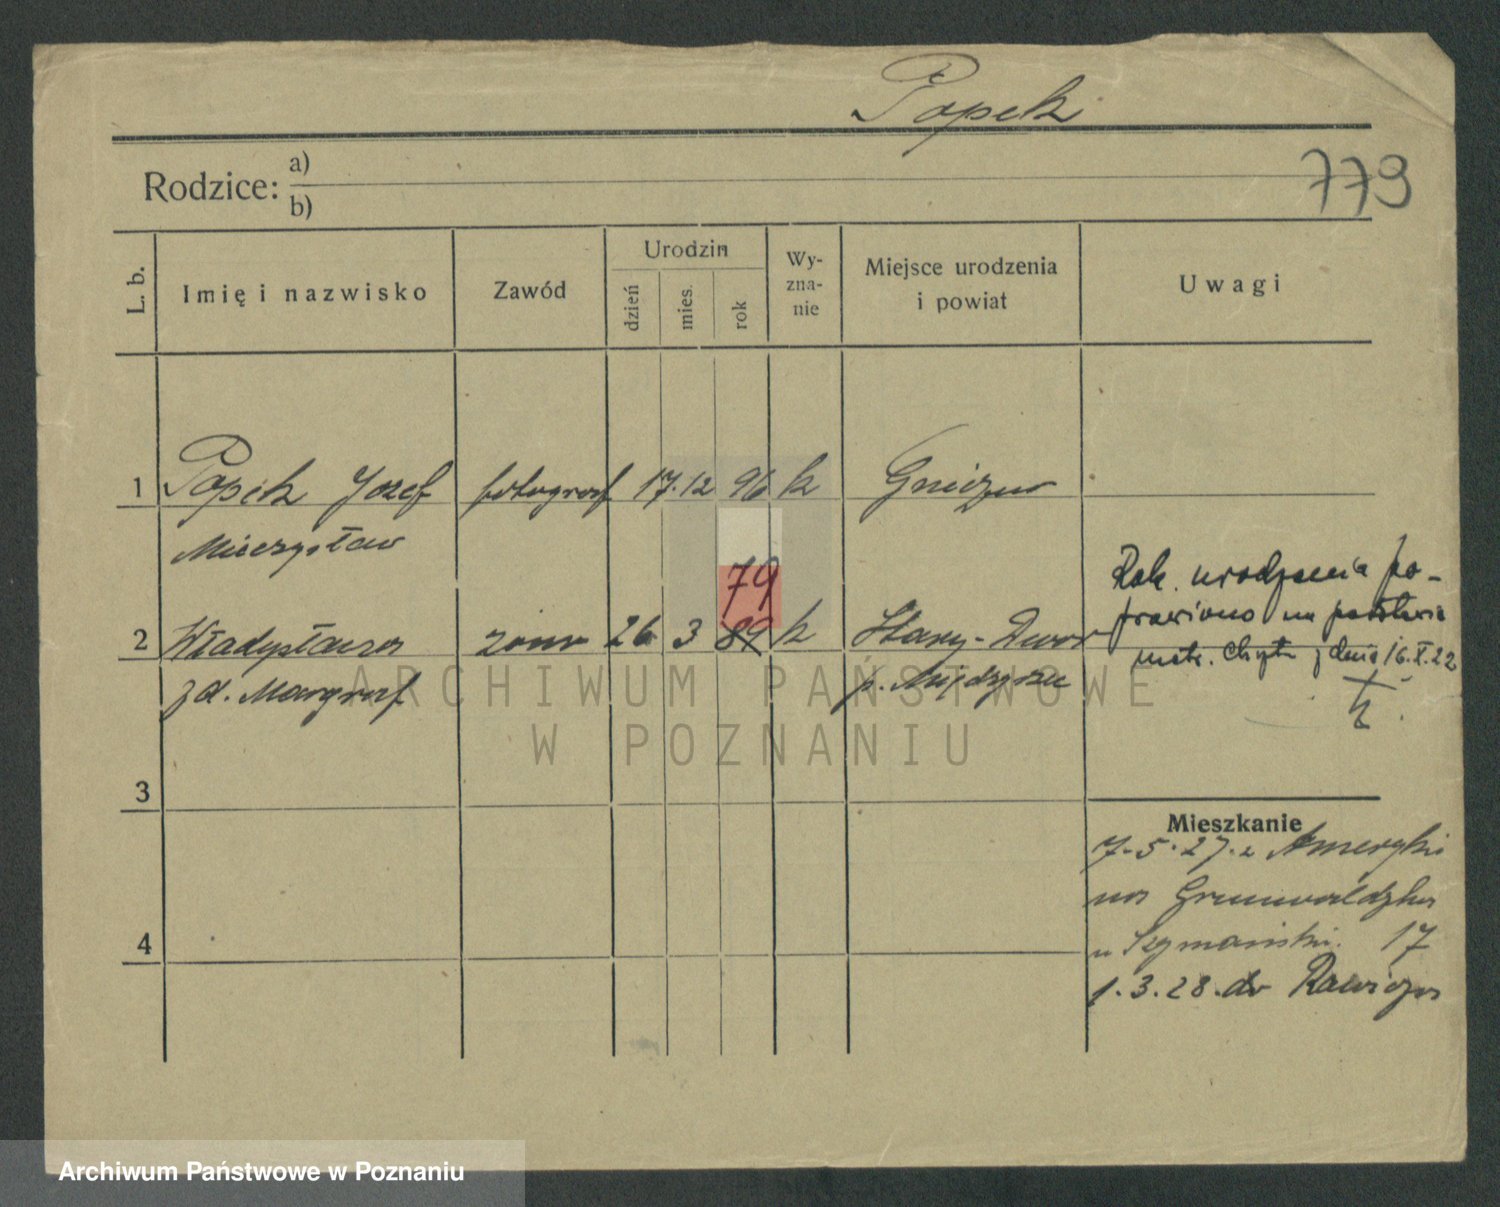 Popek
Rodzice: a)
b)
779
L. b.
Imię i nazwisko
Zawód
Urodzin
dzień
mies.
rok
Wy-
zna-
nie
Miejsce urodzenia
i powiat
Uwagi
1 Popek Jozef fotograf 17. 12 96 k Gniezno
Mieczysław
79
2 Władysława żona 26 3 89 k Stary-Dwór
zd. Margraf p. Międzyrzec
Rok. urodzenia po-
prawiono na podstawie
metr. Chrztu z dnia 16.X.22
3
4
Mieszkanie
7.5.27. z Ameryki
na Grunwaldzka
u Szymański. 17
1.3.28. do Rawicza
ARCHIWUM PAŃSTWOWE
W POZNANIU
Archiwum Państwowe w Poznaniu